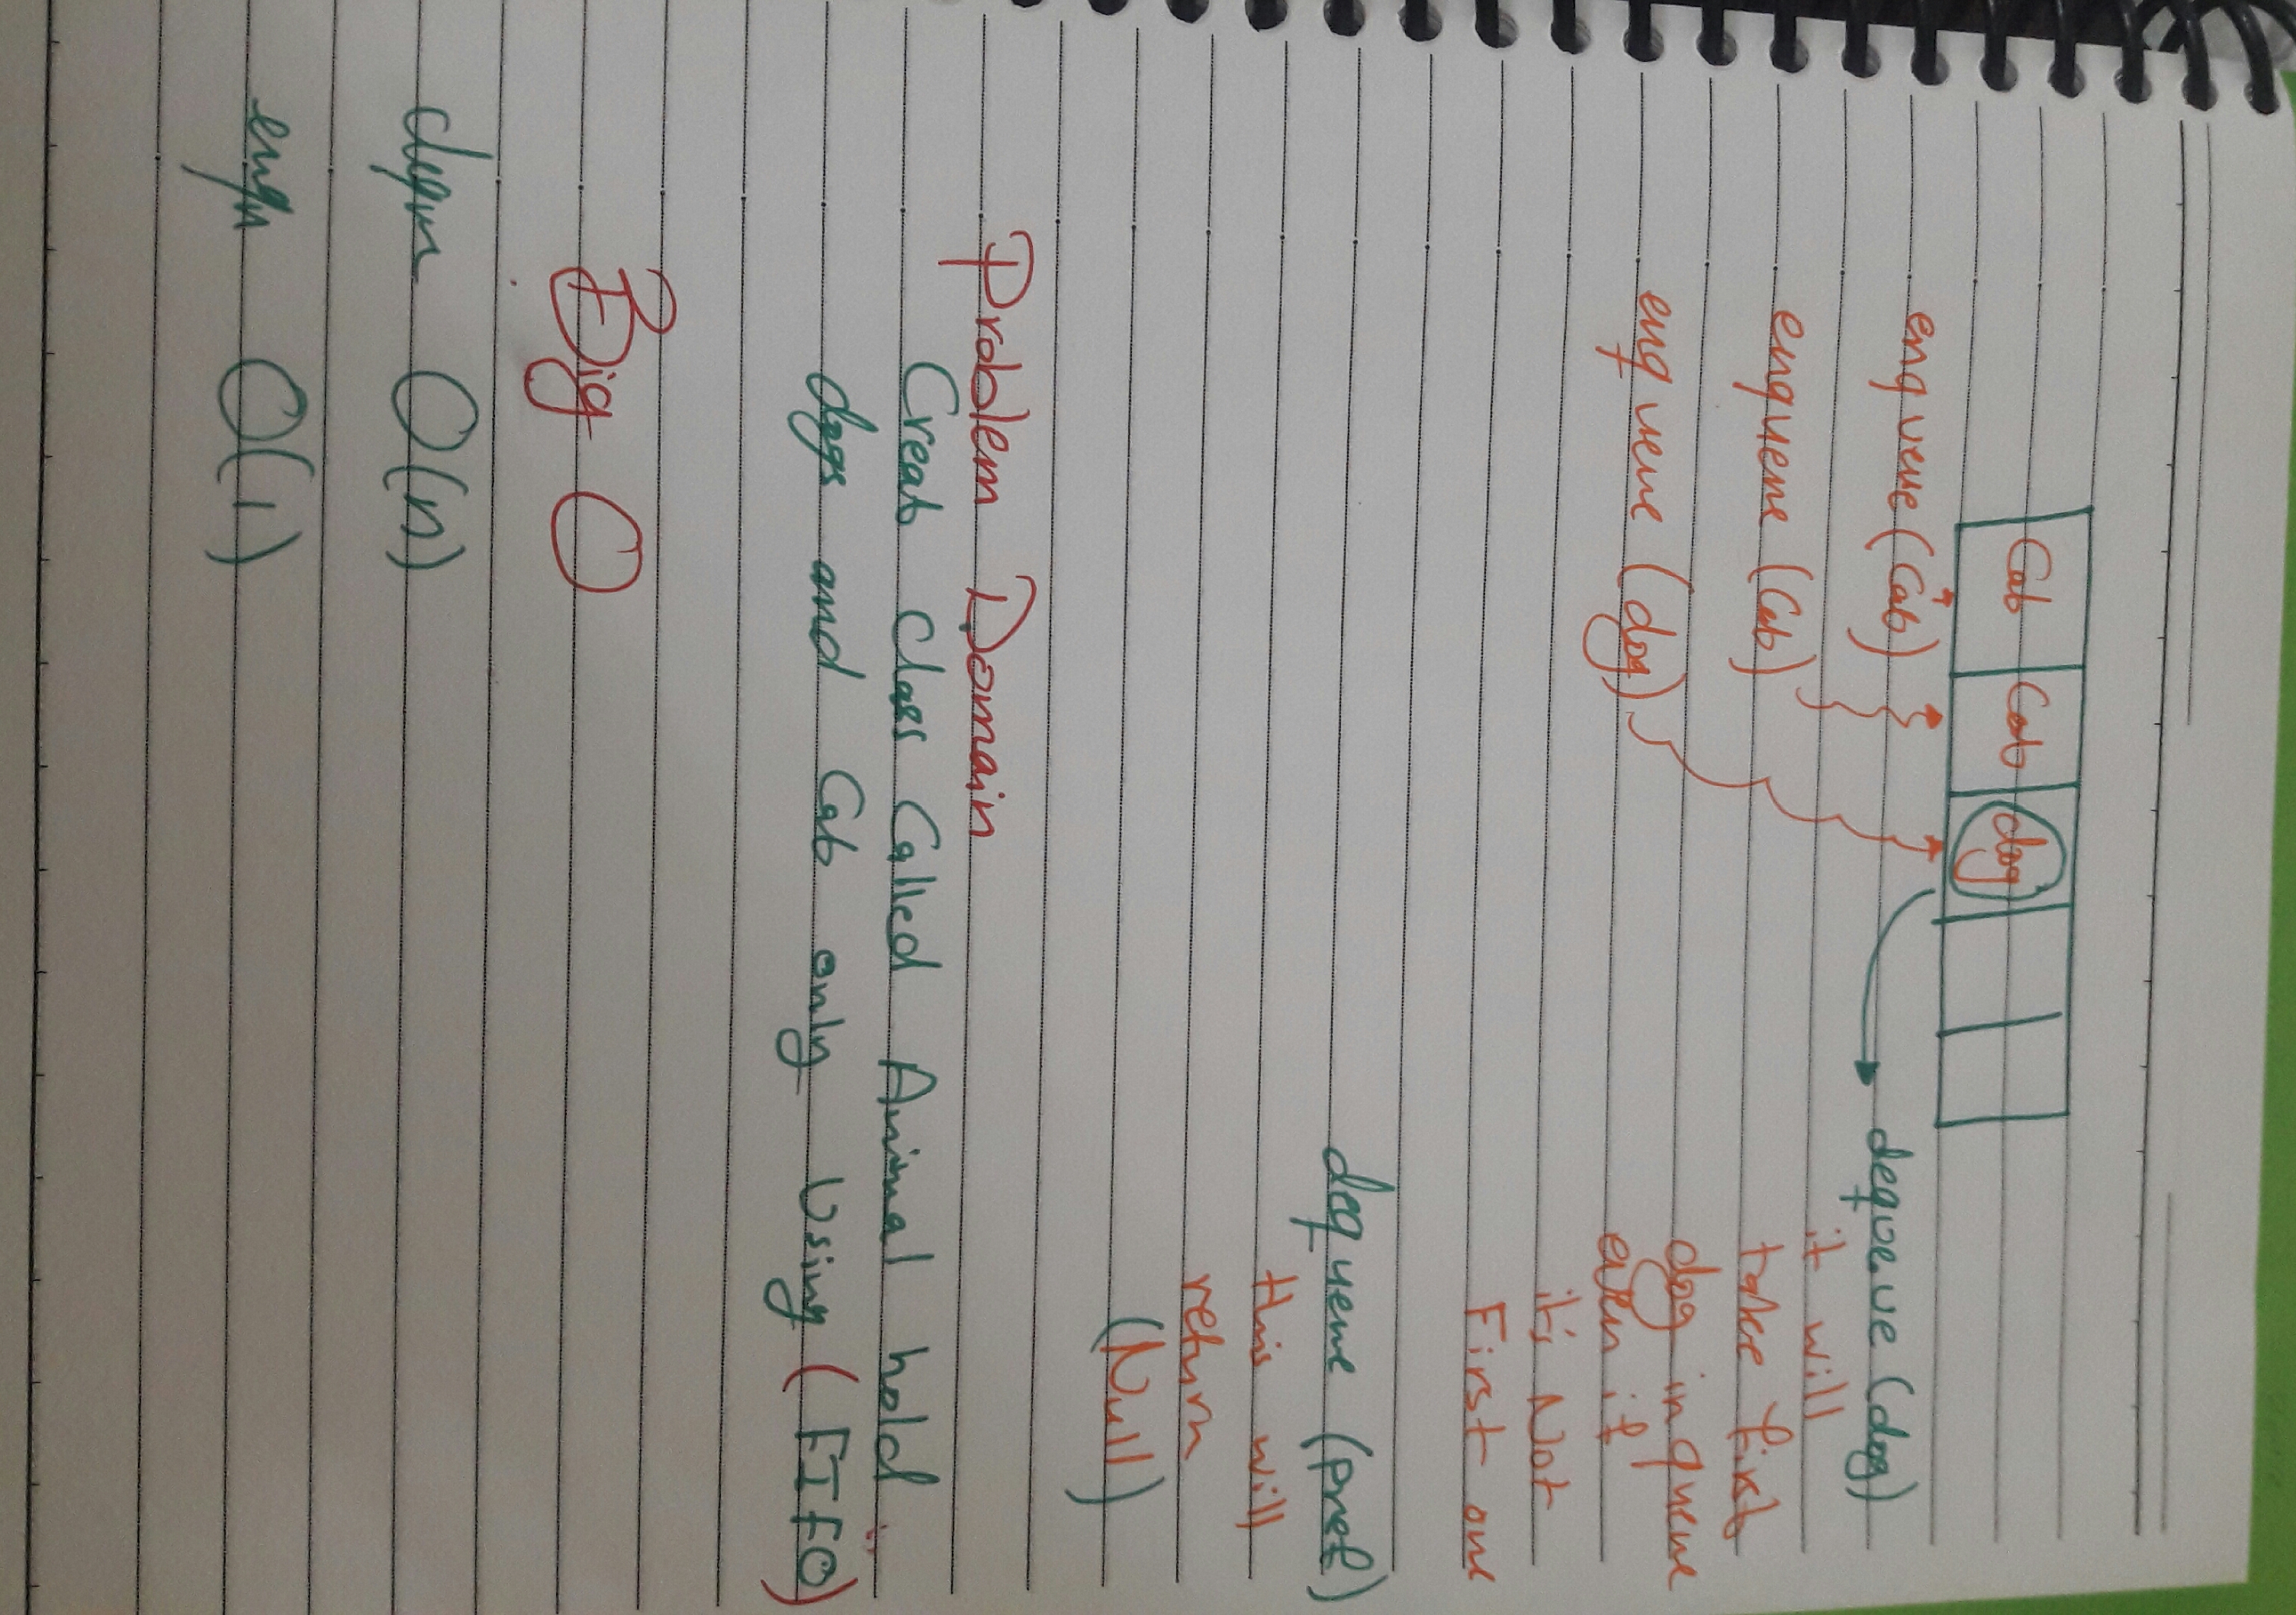 Cab Cab dog
enqueue (Cab)
enqueue (Cab)
enqueue (dog)
dequeue (dog)
it will
take first
dog in queue
even if
it's Not
First one
dequeue (pref)
this will
return
(Null)
Problem Domain
Creat Class Called Animal hold
dogs and Cab only Using (FIFO)
Big O
dequ O(n)
enqu O(1)